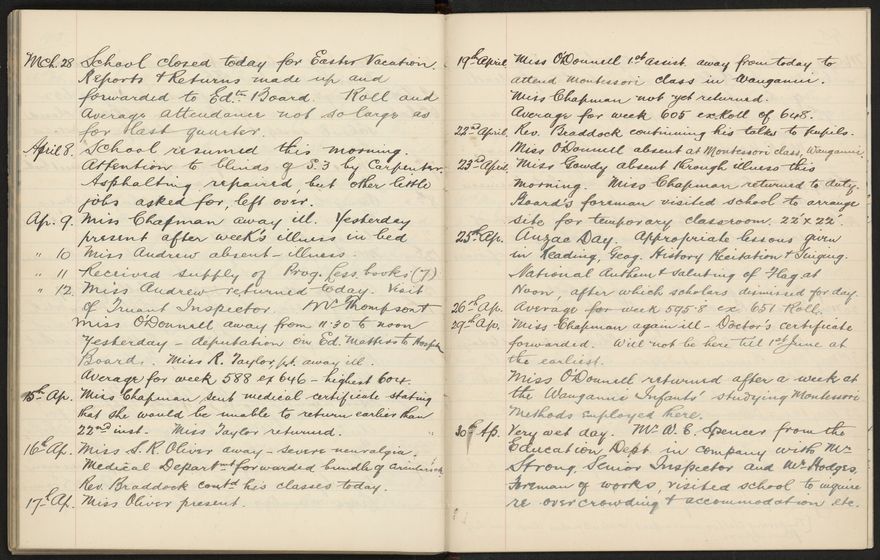 Mch. 28 School closed today for Easter Vacation.
Reports & Returns made up and
forwarded to Edtn Board. Roll and
Average attendance not so large as
for last quarter.
April 8. School resumed this morning.
Attention to blinds of S.3 by Carpenter.
Asphalting repaired, but other little
jobs asked for, left over.
Ap. 9. Miss Chapman away ill. Yesterday
present after week's illness in bed
" 10 Miss Andrew absent - illness.
" 11 Received supply of Prog. Less. books (7)
" 12. Miss Andrew returned today. Visit
of Truant Inspector. Mr Thompson
Miss O'Donnell away from 11.30 to noon
yesterday - deputation on Ed. Matters to Hospl
Board. Miss R. Taylor, p.t. away ill.
Average for week 588 ex 646 - highest 604.
15th Ap. Miss Chapman sent medical certificate stating
that she would be unable to return earlier than
22nd inst. Miss Taylor returned.
16th Ap. Miss S.R. Oliver away - severe neuralgia.
Medical Departmnt forwarded bundle of
Rev. Braddock contd his classes today.
17th Ap. Miss Oliver present.
19th April Miss O'Donnell 1st Assist. away from today to
attend Montessori class in Wanganui.
Miss Chapman not yet returned.
Average for week 605 ex Roll of 648.
22nd April. Rev. Braddock continuing his talks to pupils.
Miss O'Donnell absent at Montessori class, Wanganui.
23rd April. Miss Gowdy absent through illness this
morning. Miss Chapman returned to duty.
Board's foreman visited school to arrange
site for temporary classroom. 22' x 22'.
25th Ap. Anzac Day. Appropriate lessons given
in Reading, Geog. History Recitation & Singing.
National Anthem & saluting of Flag at
Noon, after which scholars dismissed for day.
26th Ap. Average for week 595.8 ex 651 Roll.
29th Ap. Miss Chapman again ill - Doctor's certificate
forwarded. Will not be here till 1st June at
the earliest.
Miss O'Donnell returned after a week at
the Wanganui Infants' studying Montessori
Methods employed here.
30th Ap. Very wet day. Mr W.E. Spencer from the
Education Dept. in company with Mr
Strong, Senior Inspector and Mr Hodges,
Foreman of works, visited school to inquire
re overcrowding & accommodation etc.